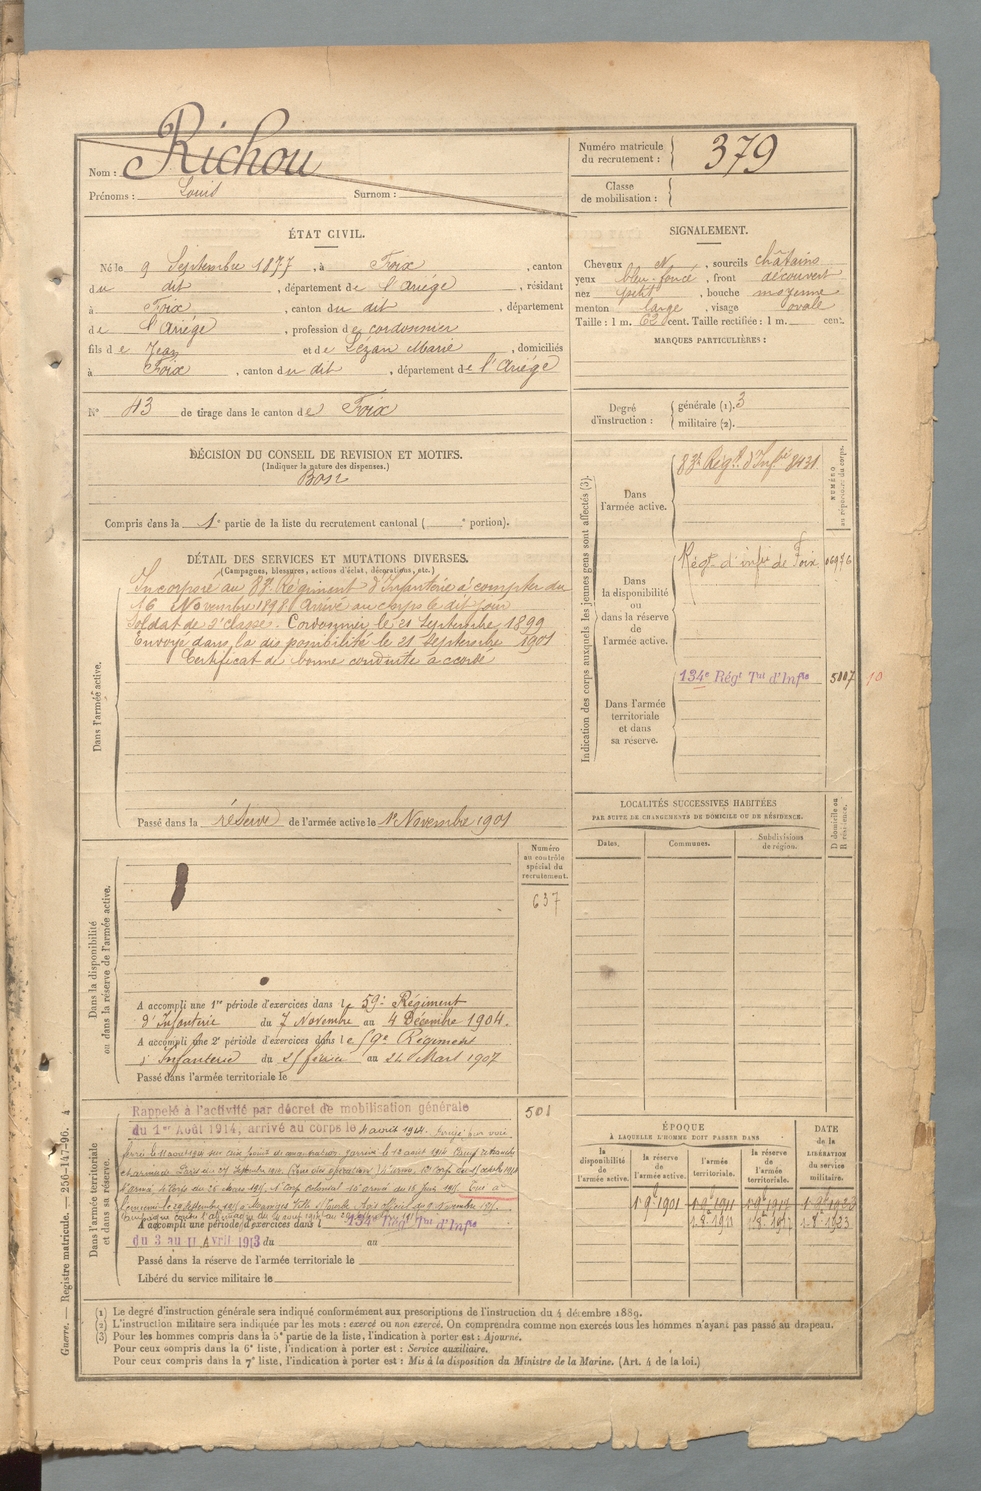 Nom : Richou
Prénoms : Louis Surnom :
Numéro matricule du recrutement : 379
Classe de mobilisation :
ÉTAT CIVIL.
Né le 9 Septembre 1877, à Foix, canton
du dit, département de l'Ariége, résidant
à Foix, canton du dit, département
de l'Ariége, profession de cordonnier
fils de Jean et de Lézan Marie, domiciliés
à Foix, canton du dit, département de l'Ariége
SIGNALEMENT.
Cheveux N, sourcils châtains
yeux bleu-foncé, front découvert
nez petit, bouche moyenne
menton large, visage ovale
Taille : 1 m. 62 cent. Taille rectifiée : 1 m. cent.
MARQUES PARTICULIÈRES :
N° 43 de tirage dans le canton de Foix
Degré d'instruction : générale (1). 3
militaire (2).
DÉCISION DU CONSEIL DE REVISION ET MOTIFS.
(Indiquer la nature des dispenses.)
Bon
Compris dans la 1e partie de la liste du recrutement cantonal ( e portion).
DÉTAIL DES SERVICES ET MUTATIONS DIVERSES.
(Campagnes, blessures, actions d'éclat, décorations, etc.)
Dans l'armée active.
Incorporé au Régiment d'Infanterie à compter du
16 Novembre 1898. Arrivé au corps le dit jour
Soldat de 2e classe. Cordonnier le 21 Septembre 1899
Envoyé dans la disponibilité le 21 Septembre 1901
Certificat de bonne conduite accordé
Passé dans la réserve de l'armée active le 1er Novembre 1901
Indication des corps auxquels les jeunes gens sont affectés (3).
NUMÉRO au répertoire du corps.
Dans l'armée active.
83e Régt d'Infie 8431
Dans la disponibilité ou dans la réserve de l'armée active.
Régt d'infie de Foix 06976
Dans l'armée territoriale et dans sa réserve.
134e Régt Tal d'Infie 5117 10
LOCALITÉS SUCCESSIVES HABITÉES
PAR SUITE DE CHANGEMENTS DE DOMICILE OU DE RÉSIDENCE.
Dates. Communes. Subdivisions de région.
D domicile ou R résidence.
Dans la disponibilité ou dans la réserve de l'armée active.
Numéro au contrôle spécial du recrutement.
637
A accompli une 1re période d'exercices dans le 59e Régiment
d'Infanterie du 7 Novembre au 4 Décembre 1904.
A accompli une 2e période d'exercices dans le 59e Régiment
d'Infanterie du 25 février au 24 Mars 1907
Passé dans l'armée territoriale le
Dans l'armée territoriale et dans sa réserve.
501
Rappelé à l'activité par décret de mobilisation générale
du 1er Août 1914, arrivé au corps le 4 août 1914.
A accompli une période d'exercices dans l 134e Régt Tal d'Infie
du 3 au 11 Avril 1913 du au
Passé dans la réserve de l'armée territoriale le
Libéré du service militaire le
ÉPOQUE
À LAQUELLE L'HOMME DOIT PASSER DANS
la disponibilité de l'armée active.
la réserve de l'armée active.
l'armée territoriale.
la réserve de l'armée territoriale.
DATE de la LIBÉRATION du service militaire.
Guerre. — Registre matricule. — 256-147-96. 4
(1) Le degré d'instruction générale sera indiqué conformément aux prescriptions de l'instruction du 4 décembre 1889.
(2) L'instruction militaire sera indiquée par les mots : exercé ou non exercé. On comprendra comme non exercés tous les hommes n'ayant pas passé au drapeau.
(3) Pour les hommes compris dans la 5e partie de la liste, l'indication à porter est : Ajourné.
Pour ceux compris dans la 6e liste, l'indication à porter est : Service auxiliaire.
Pour ceux compris dans la 7e liste, l'indication à porter est : Mis à la disposition du Ministre de la Marine. (Art. 4 de la loi.)